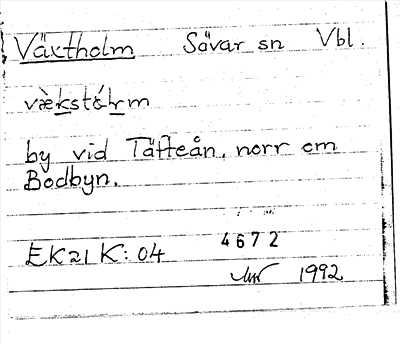 Växtholm Sävar sn Vbl.
væ̀kstóh̲r̲m
by vid Täfteån, norr om
Bodbyn.
4672
EK21K:04
1992